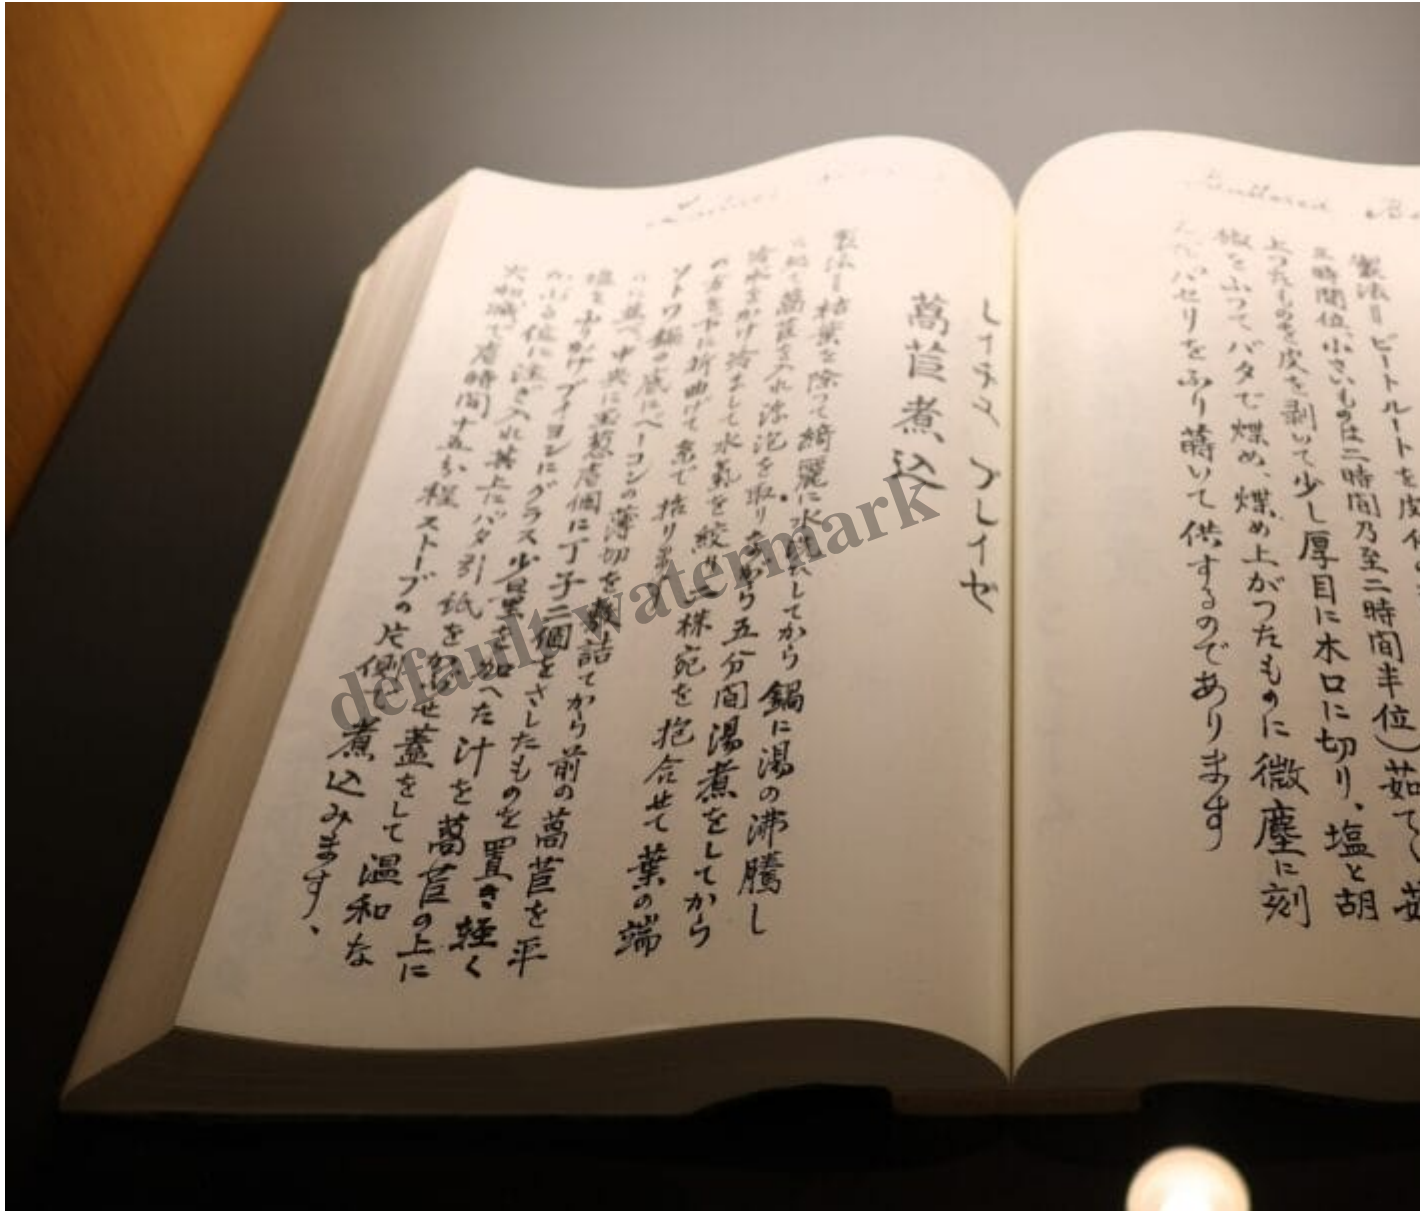 Buttered
製法＝ビートルートを皮
三時間位、小さいものは二時間乃至二時間半位）茹で
上つたものを皮を剥いて少し厚目に木口に切り、塩と胡
椒をふつてバタで煠め、煠め上がつたものに微塵に刻
パセリをふり蒔いて供するのであります
レイチヌ ブレイゼ
萵苣煮込
製法＝枯葉を除つて綺麗に水洗してから鍋に湯の沸騰し
萵苣を入れ浮泡を取りながら五分間湯煮をしてから
冷水をかけ冷まして水氣を絞り二株宛を抱合せて葉の端
の方を下に折曲げて糸で括ります
ソトワ鍋の底にベーコンの薄切を敷詰てから前の萵苣を平
に並べ中央に玉葱壱個に丁子二個をさしたものを置き軽く
塩をふりかけブイヨンにグラス少量を加へた汁を萵苣の上に
かぶる位に注ぎ入れ其上にバタ引紙をかぶせ蓋をして温和な
火加減で壱時間十五分程ストーブの片側で煮込みます、
default watermark